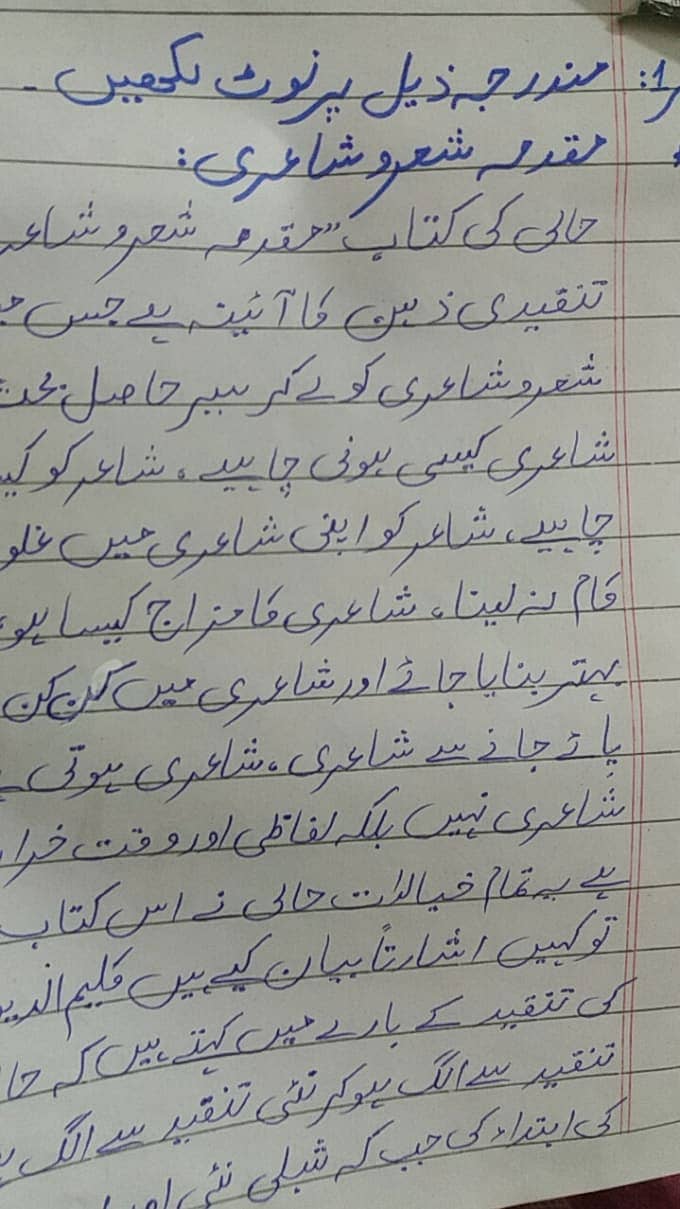 1: مندرجہ ذیل پر نوٹ لکھیں -
مقدمہ شعر و شاعری:
حالی کی کتاب "مقدمہ شعر و شاعر
تنقیدی ذہن کا آئینہ ہے جس
شعر و شاعری کو لے کر سیر حاصل بحث
شاعری کیسی ہونی چاہیے، شاعر کو
چاہیے، شاعر کو اپنی شاعری میں غلو
کام نہ لینا، شاعری کا مزاج کیسا ہو،
بہتر بنایا جائے اور شاعری میں کن کن
پائے جانے سے شاعری، شاعری ہوتی
شاعری نہیں بلکہ لفاظی اور وقت
ہے یہ تمام خیالات حالی نے اس کتاب
تو کہیں اشارتاً بیان کیے ہیں کلیم الدین
کی تنقید کے بارے میں کہتے ہیں کہ
تنقید سے الگ ہو کر نئی تنقید سے الگ
کی ابتداء کی جب کہ شبلی نئی